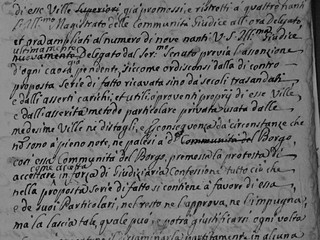 di esse Ville Superiori già promossi, e ristretti a quattro hanti
S. Ill.mo Magistrato delle Communità Giudice all'ora Delegato,
et poi ampliati al numero di nove nanti V. S. Ill.ma Giudice
ultimamente
nuovamente Delegato dal Ser.mo Senato previa l'assonzione
d'ogni cosa prudente, siccome ordisce nsi dalla di contro
proposta Serie di fatto ricavata sino da secoli trasandati
e dalli asserti carichi, et utili, o proventi proprij di esse Ville
e dall'asserita metodo particolare privata usata dalle
medesime Ville ne distagli, e conseguenza da circostanze che
no sono a pieno note, ne palesi a d.a Communità del Borgo,
con essa Communità del Borgo, premessa la protesta di
come cioè fa
accettare in forza di Giudiciaria Confessione tutto ciò che
nella proposta Serie di fatto si contiene a favore di essa
de suoi Particolari, nel resto ne l'approva, ne l'impugna,
ma la lascia tale, quale può, e potrà giustificarsi ogni volta